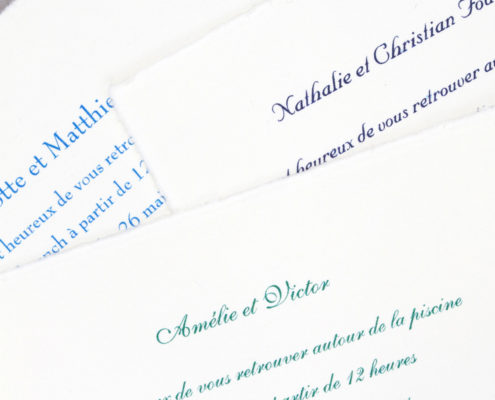 Nathalie et Christian
heureux de vous retrouver
et Matthie
heureux de vous retro
à partir de 12
26 mai
Amélie et Victor
de vous retrouver autour de la piscine
partir de 12 heures